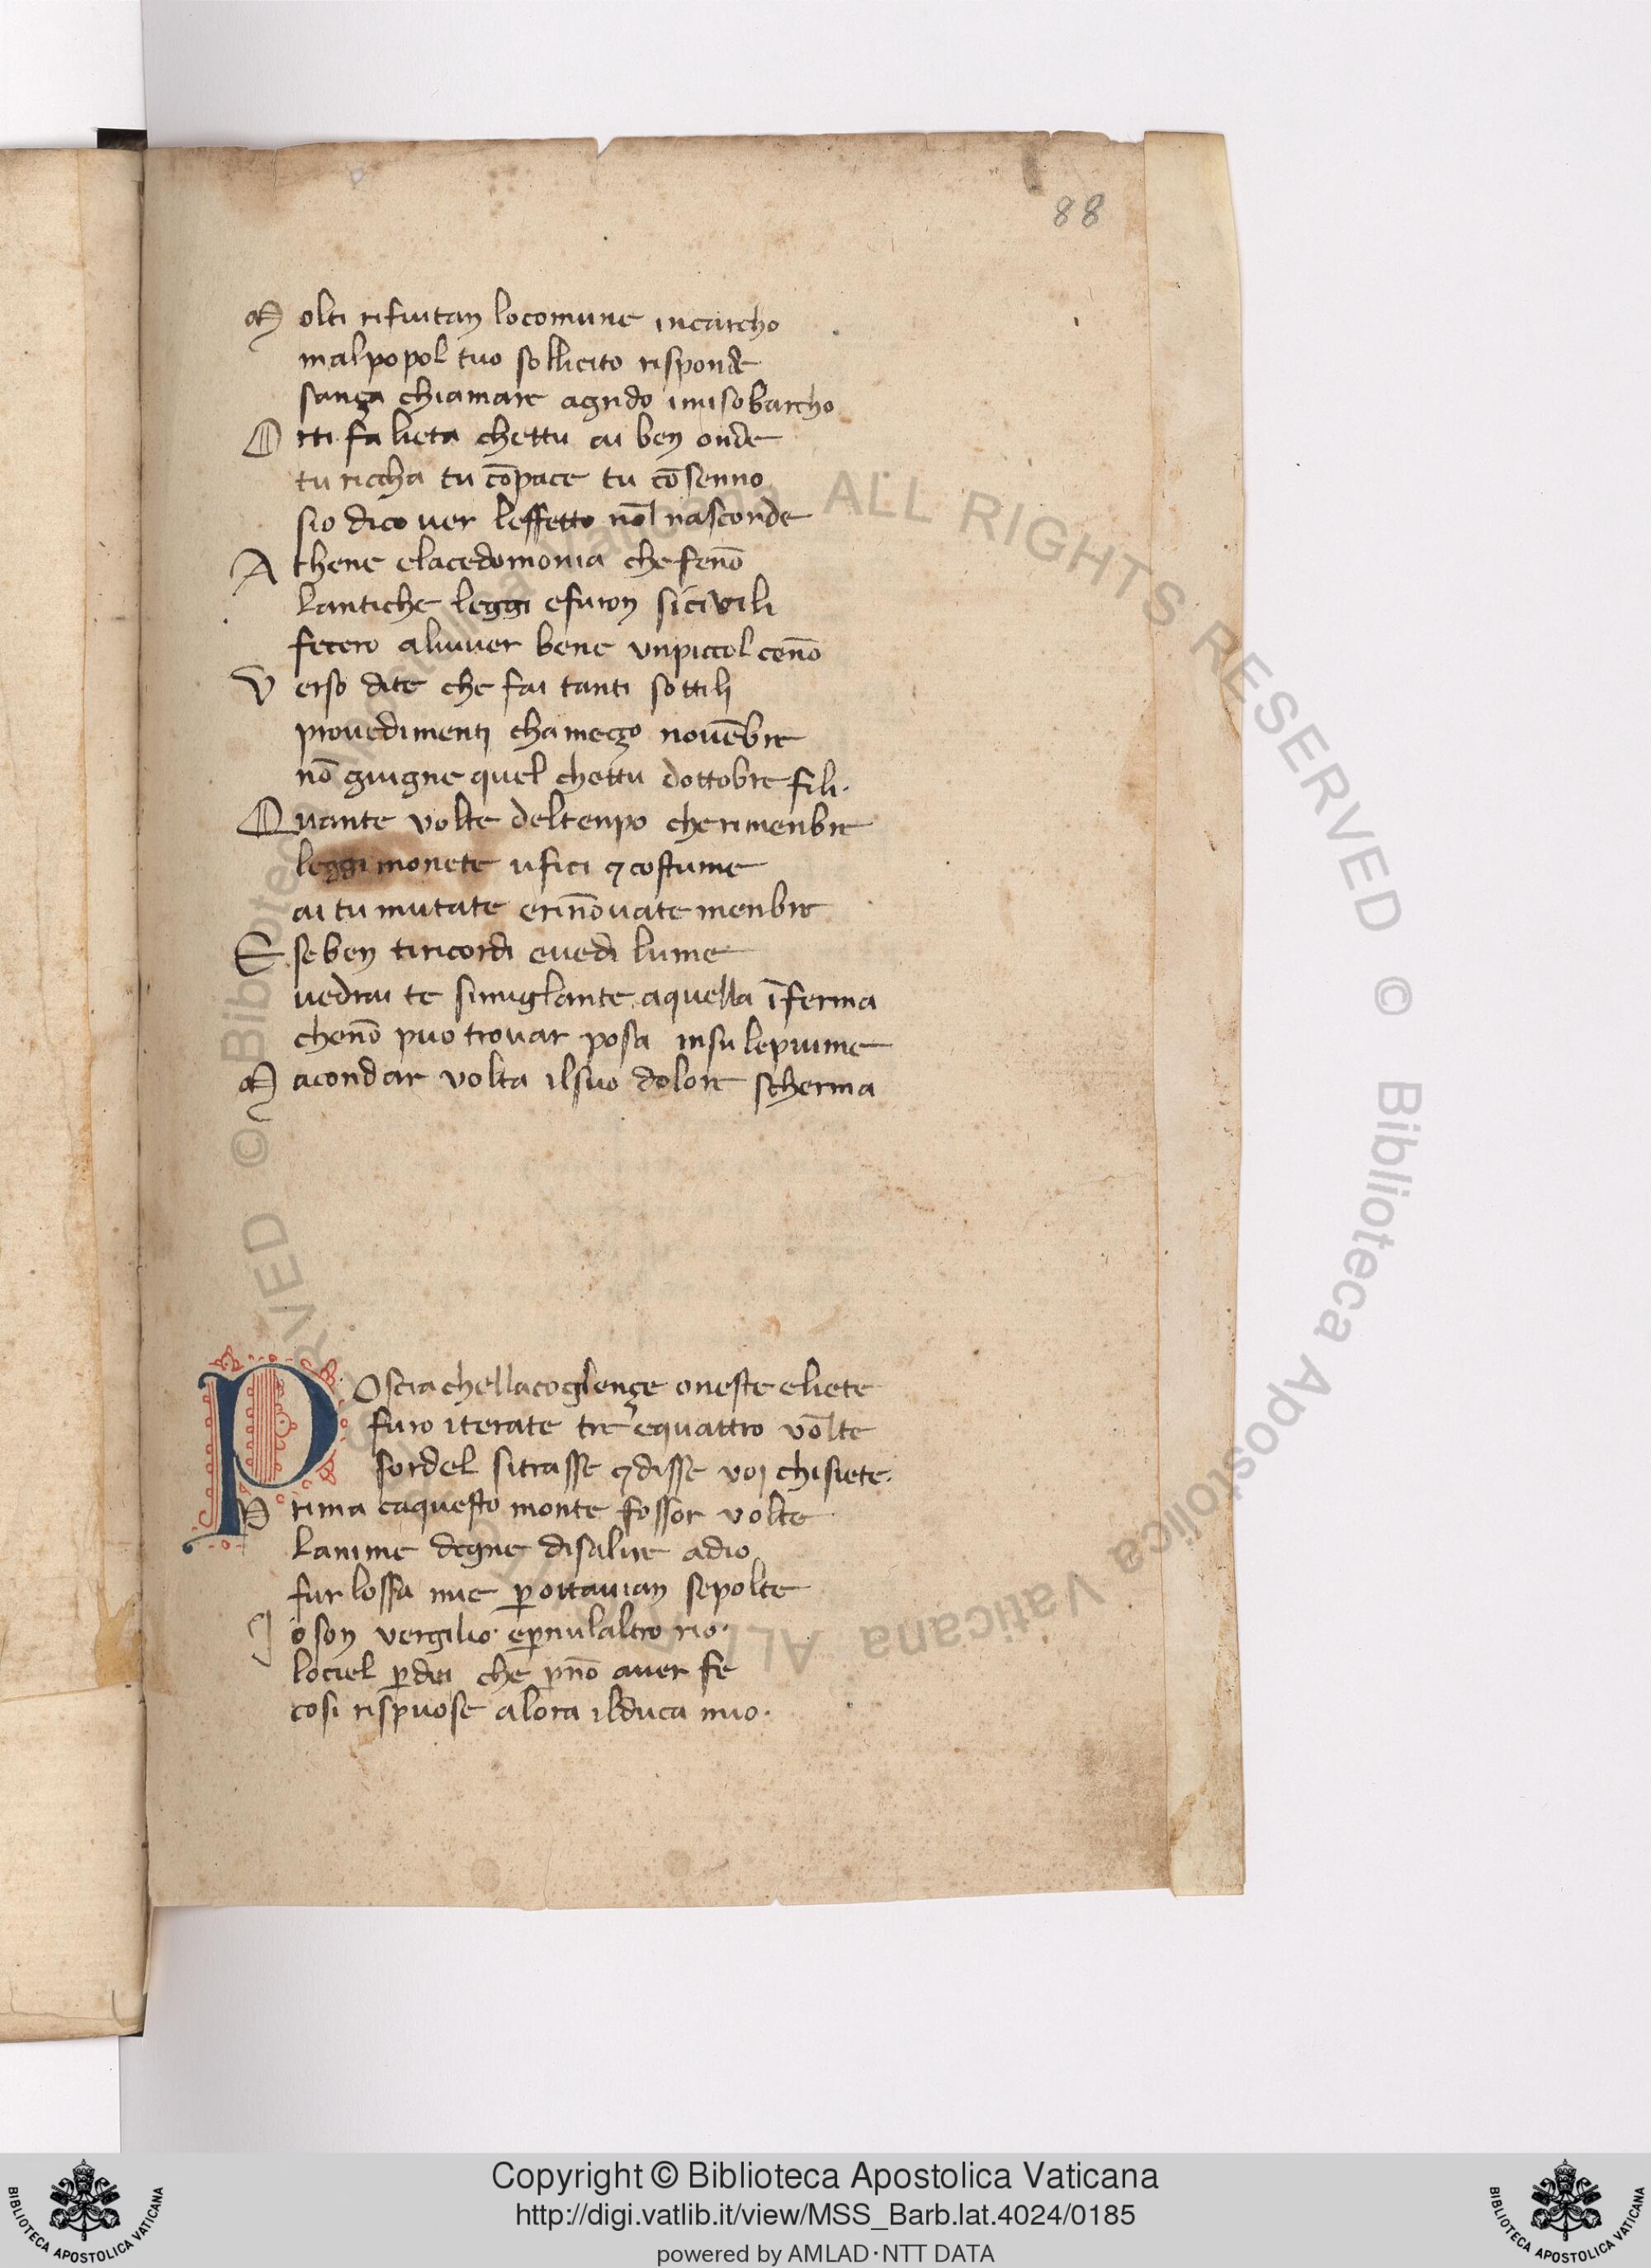 88
Molti rifiutan locomune incarcho
malpopol tuo sollicito risponde
sança chiamare agrido imisobarcho
Orti fa lieta chettu ai ben onde
tu riccha tu cōpace tu cōsenno
sio dico uer leffetto nōl nasconde
Athene elacedomonia chefenō
lantiche leggi efuron sicivili
fecero aluiuer bene unpiccol cenō
Verso dite che fai tanti sottili
prouedimenti chameço nouēbre
nō giugne quel chettu dottobre fili.
Quante volte deltenpo cherimenbre
leggi monete ufici ⁊ costume
ai tu mutate erinōuate menbre
E seben tiricordi euedi lume
uedrai te simiglante aquella īferma
chenō puo trouar posa insu lepiume
Macondar volta ilsuo dolore scherma
Poscia chellacoglençe oneste eliete
furo iterate tre equattro vōlte
sordel sitrasse ⁊ disse voi chisiete.
Prima caquesto monte fossor volte
lanime degne disalire adio
fur lossa mie ꝑ ottauian sepolte
Io son vergilio. eꝑnulaltro rio.
lociel ꝑdei che ꝑnō auer fe
cosi rispuose alora ilduca mio.
© Biblioteca Apostolica Vaticana ALL RIGHTS RESERVED © Biblioteca Apostolica Vaticana ALL RIGHTS RESERVED
Copyright © Biblioteca Apostolica Vaticana
http://digi.vatlib.it/view/MSS_Barb.lat.4024/0185
powered by AMLAD·NTT DATA
BIBLIOTECA APOSTOLICA VATICANA
BIBLIOTECA APOSTOLICA VATICANA